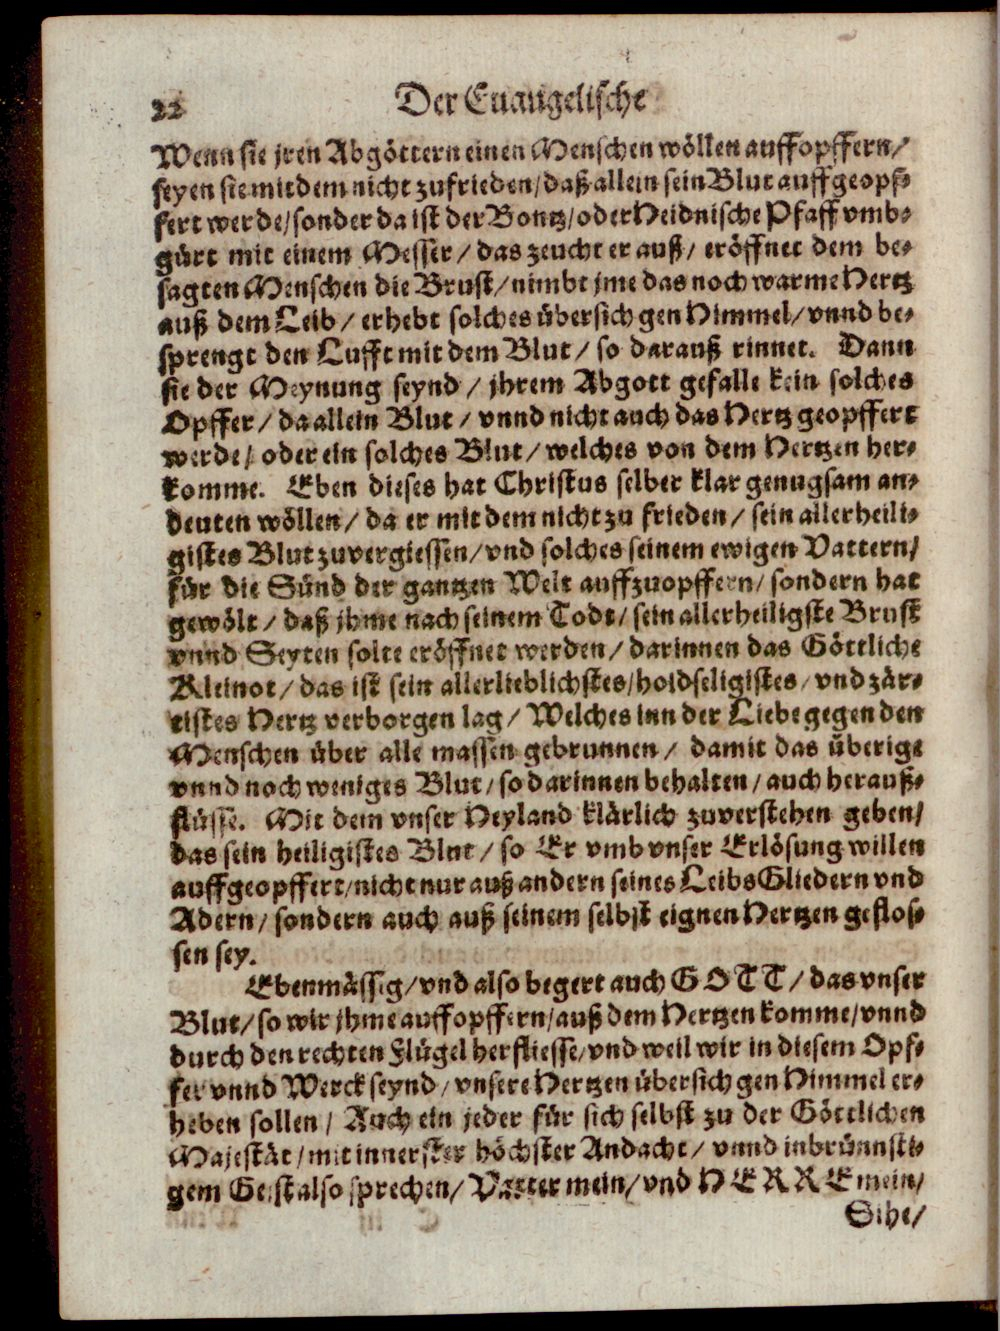 22 Der Euangelische
Wenn sie jren Abgöttern einen Menschen wöllen auffopffern/
seyen sie mit dem nicht zufrieden/ daß allein sein Blut auffgeopf-
fert werde/ sonder da ist der Bontz/ oder Heidnische Pfaff vmb-
gürt mit einem Messer/ das zeucht er auß/ eröffnet dem be-
sagten Menschen die Brust/ nimbt jme das noch warme Hertz
auß dem Leib/ erhebt solches übersich gen Himmel/ vnnd be-
sprengt den Lufft mit dem Blut/ so darauß rinnet. Dann
sie der Meynung seynd/ jhrem Abgott gefalle kein solches
Opffer/ da allein Blut/ vnnd nicht auch das Hertz geopffert
werde/ oder ein solches Blut/ welches von dem Hertzen her-
komme. Eben dieses hat Christus selber klar genugsam an-
deuten wöllen/ da er mit dem nicht zu frieden/ sein allerheili-
gistes Blut zuvergiessen/ vnd solches seinem ewigen Vattern/
für die Sünd der gantzen Welt auffzuopffern/ sondern hat
gewölt/ daß jhme nach seinem Todt/ sein allerheiligste Brust
vnnd Seyten solte eröffnet werden/ darinnen das Göttliche
Kleinot/ das ist sein allerlieblichstes/ holdseligistes/ vnd zär-
tistes Hertz verborgen lag/ Welches inn der Liebe gegen den
Menschen über alle massen gebrunnen/ damit das überige
vnnd noch weniges Blut/ so darinnen behalten/ auch herauß-
flüsse. Mit dem vnser Heyland klärlich zuverstehen geben/
das sein heiligistes Blut/ so Er vmb vnser Erlösung willen
auffgeopffert/ nicht nur auß andern seines Leibs Gliedern vnd
Adern/ sondern auch auß seinem selbst eignen Hertzen geflos-
sen sey.
Ebenmässig/ vnd also begert auch GOTT/ das vnser
Blut/ so wir jhme auffopffern/ auß dem Hertzen komme/ vnnd
durch den rechten Flügel herfliesse/ vnd weil wir in diesem Opf-
fer vnnd Werck seynd/ vnsere Hertzen übersich gen Himmel er-
heben sollen/ Auch ein jeder für sich selbst zu der Göttlichen
Majestät/ mit innerster höchster Andacht/ vnnd inbrünnsti-
gem Geist also sprechen/ Vatter mein/ vnd HERRE mein/
Sihe/